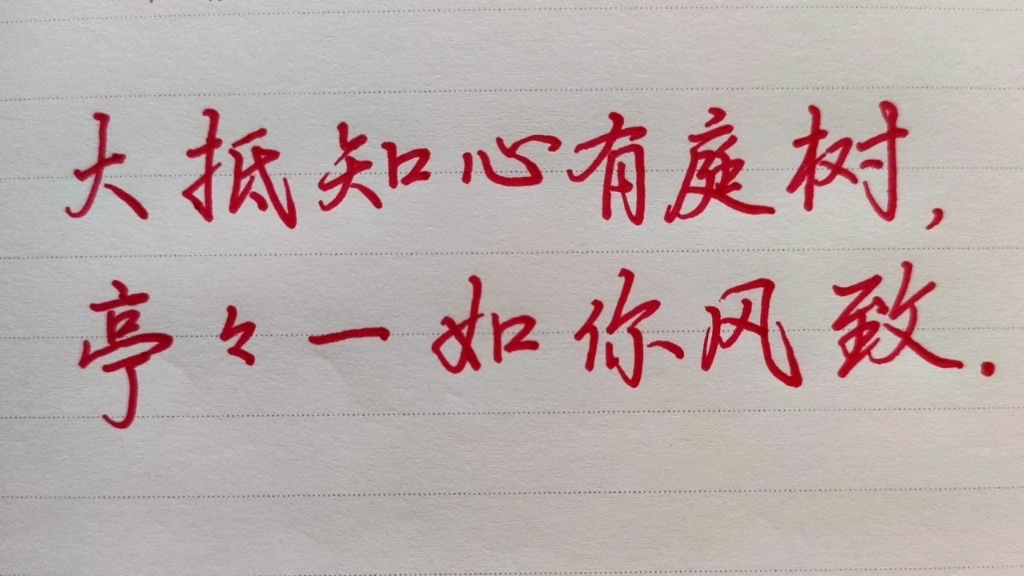 大抵知心有庭树,
亭々一如你风致.